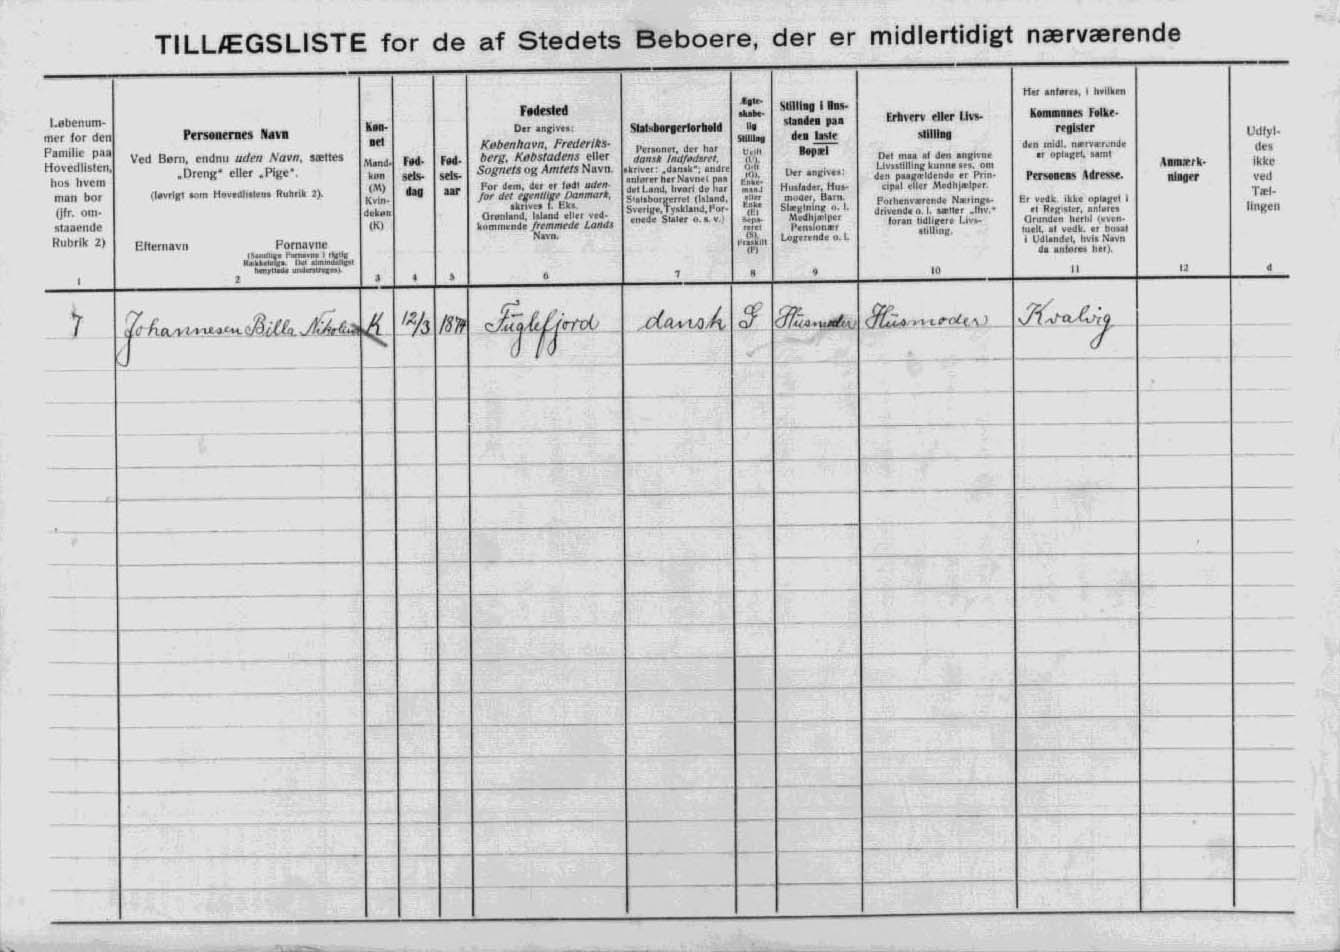 TILLÆGSLISTE for de af Stedets Beboere, der er midlertidigt nærværende
Løbenum-
mer for den
Familie paa
Hovedlisten,
hos hvem
man bor
(jfr. om-
staaende
Rubrik 2)
1
Personernes Navn
Ved Børn, endnu uden Navn, sættes
„Dreng“ eller „Pige“.
(Iøvrigt som Hovedlistens Rubrik 2).
Efternavn Fornavne
(Samtlige Fornavne i rigtig
Rækkefølge. Det almindeligst
benyttede understreges).
2
Køn-
net
Mand-
køn
(M)
Kvin-
dekøn
(K)
3
Fød-
sels-
dag
4
Fød-
sels-
aar
5
Fødested
Der angives:
København, Frederiks-
berg, Købstadens eller
Sognets og Amtets Navn.
For dem, der er født uden-
for det egentlige Danmark,
skrives f. Eks.
Grønland, Island eller ved-
kommende fremmede Lands
Navn.
6
Statsborgerforhold
Personer, der har
dansk Indfødsret,
skriver: „dansk“; andre
anfører her Navnet paa
det Land, hvori de har
Statsborgerret (Island,
Sverige, Tyskland, For-
enede Stater o. s. v.)
7
Ægte-
skabe-
lig
Stilling
Ugift
(U),
Gift
(G),
Enke-
mand
eller
Enke
(E)
Sepa-
reret
(S),
Fraskilt
(F)
8
Stilling i Hus-
standen paa
den faste
Bopæl
Der angives:
Husfader, Hus-
moder, Barn,
Slægtning o. l.
Medhjælper
Pensionær
Logerende o. l.
9
Erhverv eller Livs-
stilling
Det maa af den angivne
Livsstilling kunne ses, om
den paagældende er Prin-
cipal eller Medhjælper.
Forhenværende Nærings-
drivende o. l. sætter „fhv.“
foran tidligere Livs-
stilling.
10
Her anføres, i hvilken
Kommunes Folke-
register
den midl. nærværende
er optaget, samt
Personens Adresse.
Er vedk. ikke optaget i
et Register, anføres
Grunden hertil (even-
tuelt, at vedk. er bosat
i Udlandet, hvis Navn
da anføres her).
11
Anmærk-
ninger
12
Udfyl-
des
ikke
ved
Tæl-
lingen
d
7 Johannesen Billa K 12/3 Fuglefjord dansk G Husmoder Husmoder Kvalvig